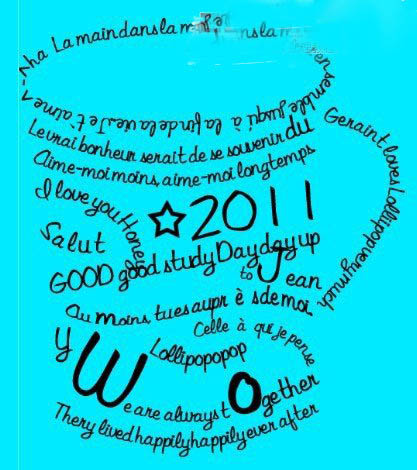 Nha La main dans la
ensemble jusqu'à la fin de la vie Je t'aime
Le vrai bonheur serait de se souvenir du
Aime-moi moins, aime-moi longtemps
Geraint loves Lollipop very much
I love you Honey
☆2011
Salut
GOOD good study Day day up
to Jean
Au moins, tu es auprès de moi
Celle à qui je pense
y
Lollipopopop
We are always tOgether
Thery lived happily happily ever after